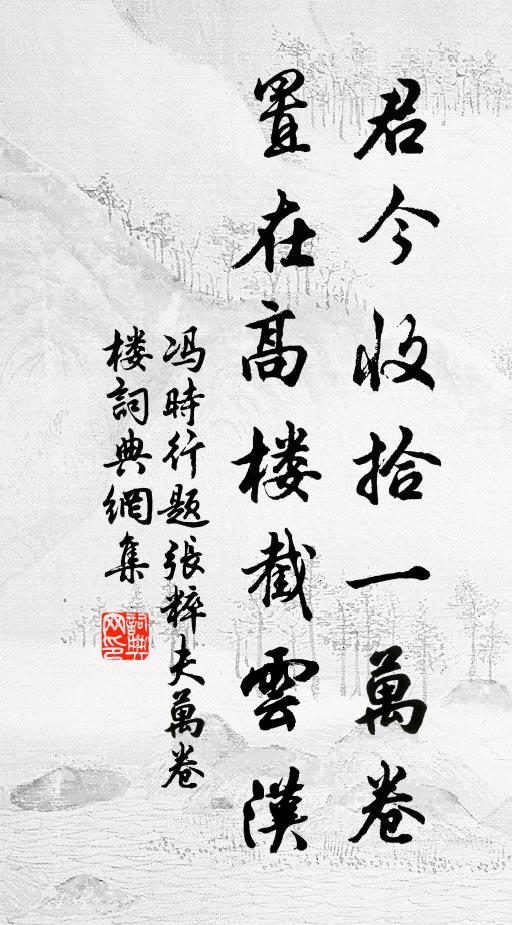 君今收拾一萬卷
置在高楼截雲漢
冯時行题張粹夫萬卷
楼詞典網集
詞典
网印